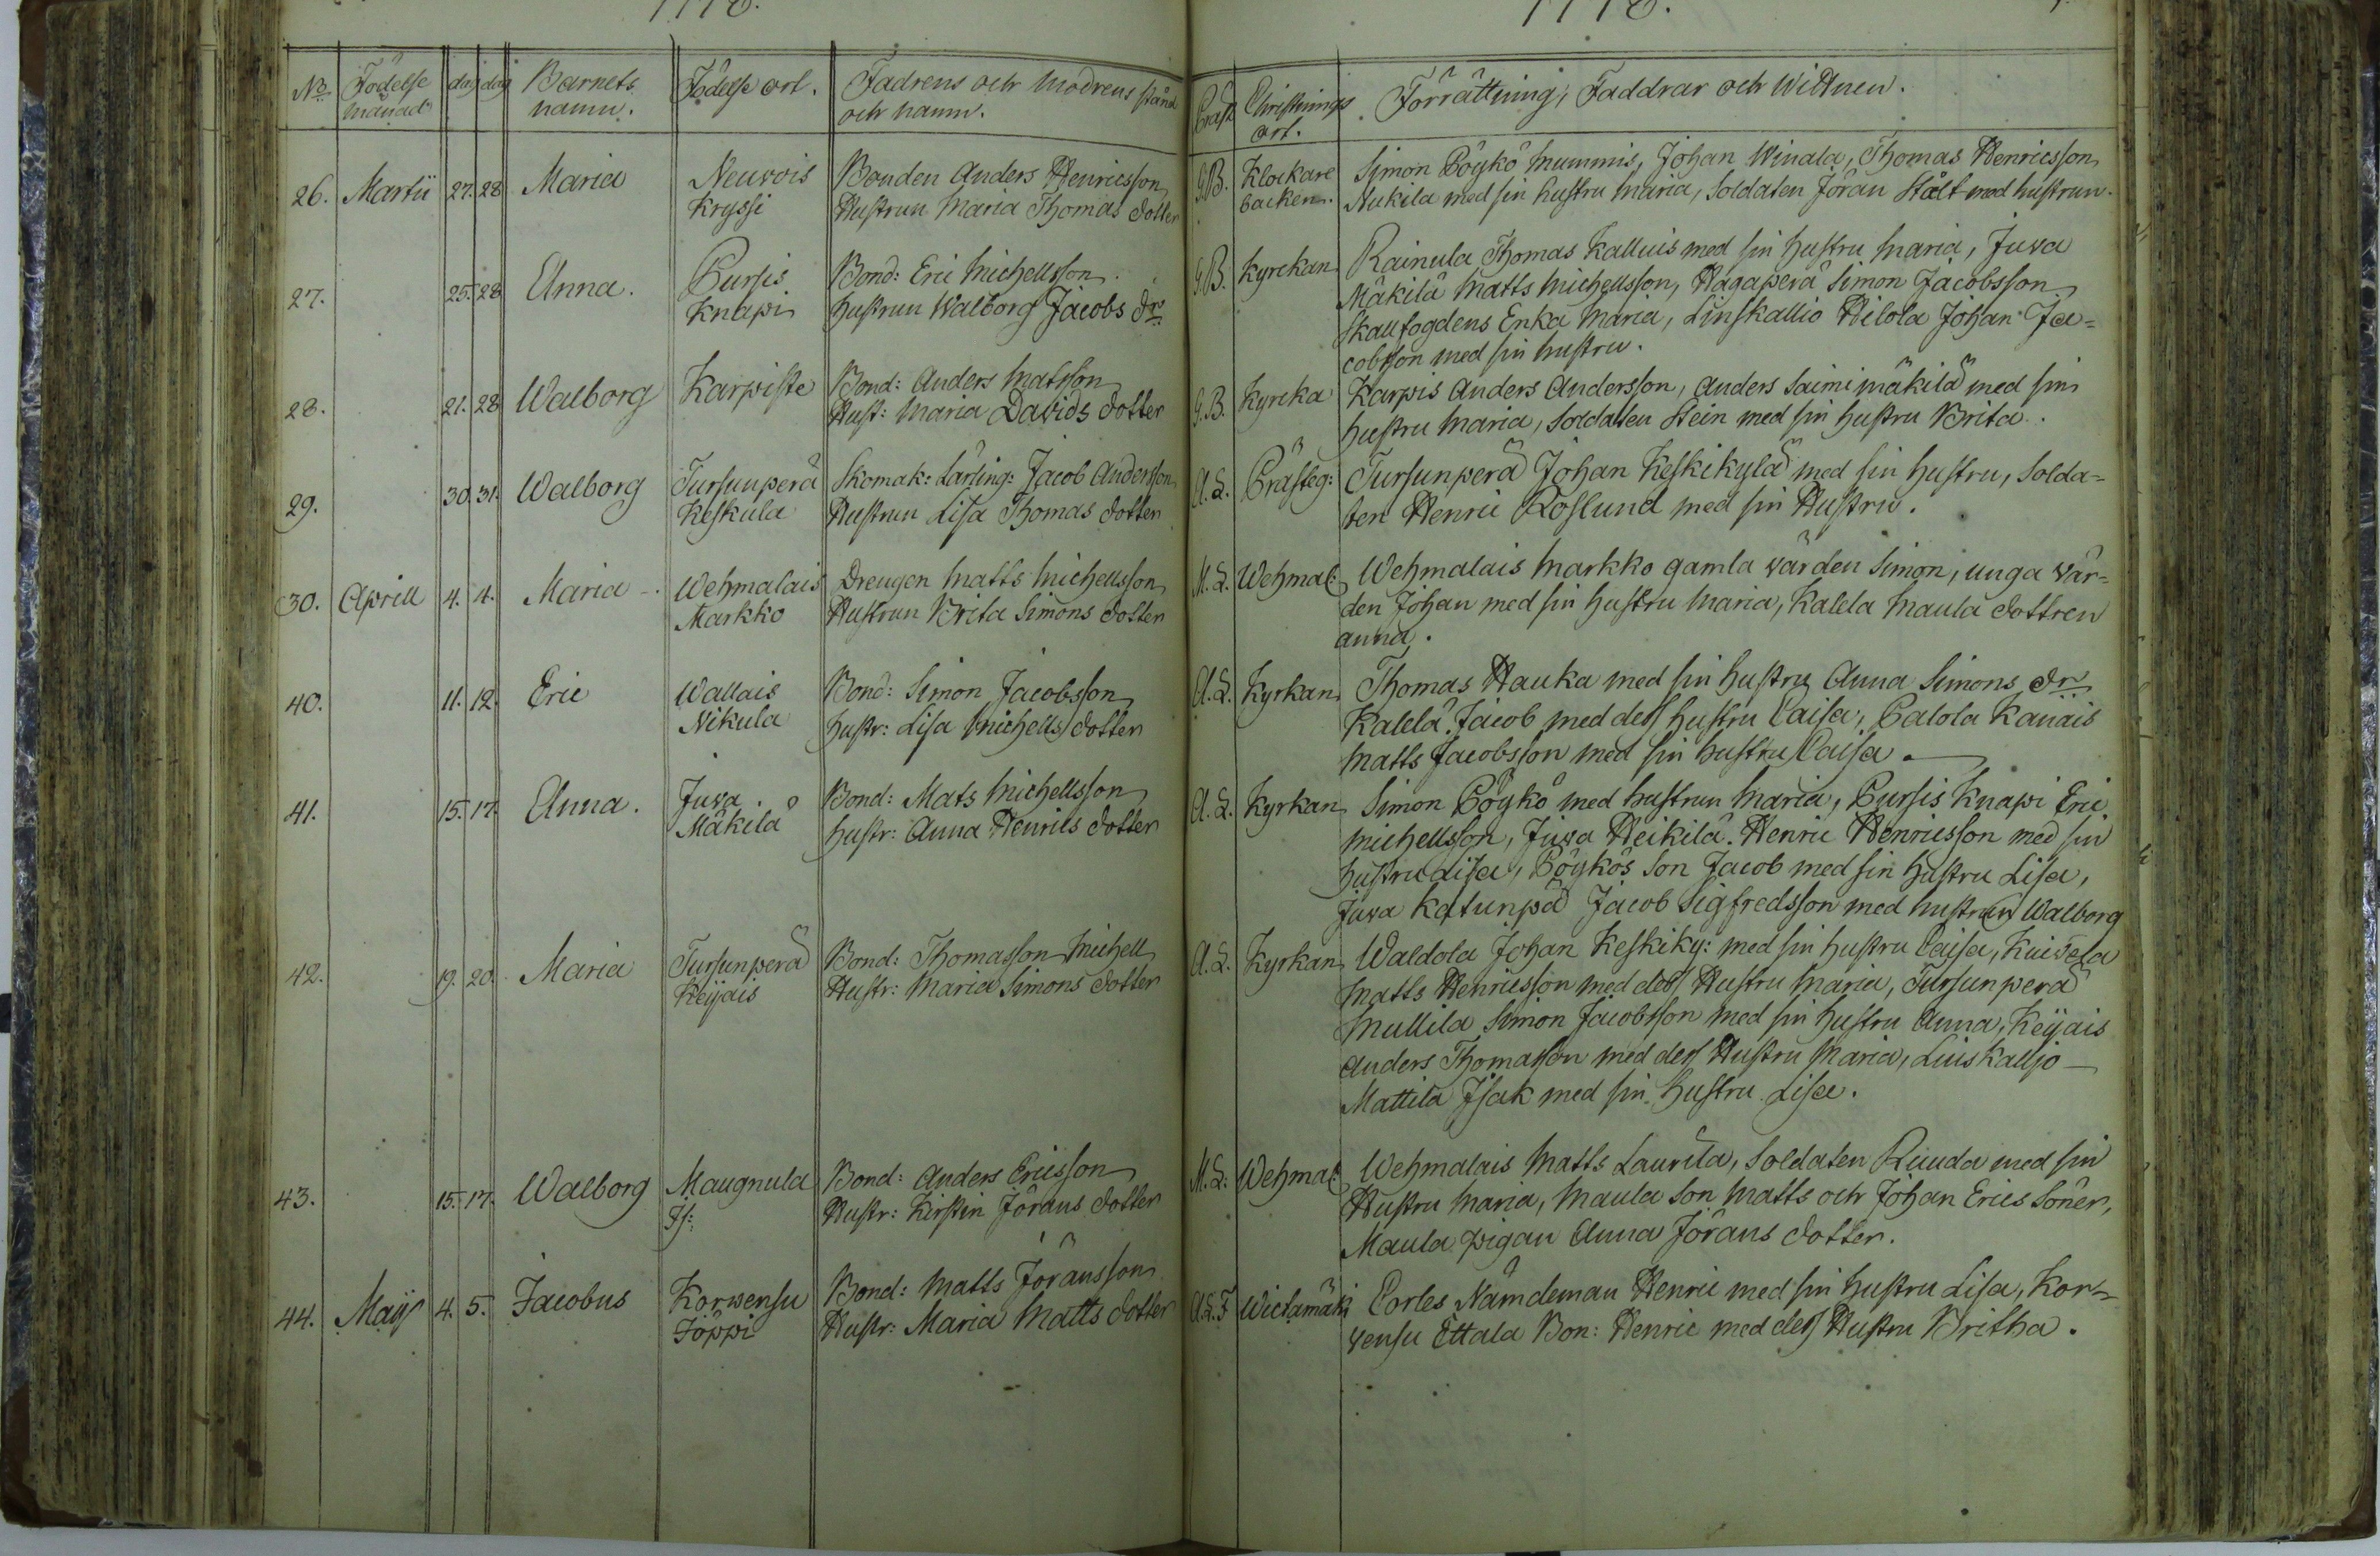 1778.
No. Födelse månad dag dag Barnets namn. Födelse ort. Fadrens och Modrens stånd och namn.
26. Martii 27. 28 Maria Neuvois Bonden Anders Henricsson
Kryssi Hustrun Maria Thomas dotter
27. 25. 28 Anna. Pursis Bond: Eric Michellsson
Knapi hustrun Walborg Jacobs dr
28. 21. 28 Walborg Karpiste Bond: Anders Matsson
Hust: Maria Davids dotter
29. 30. 31. Walborg Tursunperä Skomak: Lärling: Jacob Andersson
Keskula Hustrun Lisa Thomas dotter
30. Aprill 4. 4. Maria Wehmalais Drengen Matts Michellsson
Markko Hustrun Brita Simons dotter
40. 11. 12. Eric Wallais Bond: Simon Jacobsson
Nikula hustr: Lisa Michells dotter
41. 15. 17. Anna. Juva Bond: Mats Michellsson
Mäkilä hustr: Anna Henrics dotter
42. 19. 20. Maria Tursunperä Bond: Thomasson Michell
Keijais Hustr: Maria Simons dotter
43. 15. 17. Walborg Maugnula Bond: Anders Ericsson
Hustr: Kirstin Jörans dotter
44. Maij 4. 5. Jacobus Korwensu Bond: Matts Joransson
Jöppi Hustr: Maria Matts dotter
1778.
Präst Christnings ort. Förrättning, Faddrar och Wittnen.
G.B. Klockare Simon Pöykö Mummis, Johan Winala, Thomas Henricsson
backen. Nukila med sin hustru Maria, Soldaten Jöran Stålt med hustrun.
G.B. Kyrckan Rainula Thomas Kalluis med sin hustru Maria, Juva
Mäkilä Matts Michellsson, Hagaperä Simon Jacobsson
Skaufogdens Enka Maria, Linskallio Hilola Johan Ja=
cobsson med sin hustru.
G.B. Kyrcka Karpis Anders Andersson, Anders Saimimäkilä med sin
hustru Maria, Soldaten Stein med sin hustru Brita.
A.L. Prästeg: Tursunperä Johan Keskikylä med sin hustru, Solda=
ten Henric Roslund med sin Hustru.
M.L. Wehmal: Wehmalais Markko gamla värden Simon, unga vär=
den Johan med sin hustru Maria, Kalela Maula dottren
anna.
A.L. Kyrkan Thomas Hauka med sin hustru Anna Simons dr
Kalela Jacob med dess hustru Caisa, Palola Kauais
Matts Jacobsson med sin hustru Caisa.
A.L. Kyrkan Simon Pöykö med hustrun Maria, Pursis Knapi Eric
Michellsson, Juva Heikilä Henric Henricsson med sin
hustru Lisa, Pöykös Son Jacob med sin hustru Lisa,
Juva Katunpä Jacob Sigfredsson med hustrun Walborg
A.L. Kyrkan Waldola Johan Keskiky: med sin hustru Caisa, Kuivela
Matts Henricsson med dess Hustru Maria, Tursunperä
Mullila Simon Jacobsson med sin hustru Anna, Keijais
Anders Thomasson med dess Hustru Maria, Luiskallio
Mattila Isak med sin hustru Lisa.
M.L. Wehmal: Wehmalais Matts Laurila, Soldaten Ruuda med sin
Hustru Maria, Maula Son Matts och Johan Erics Söner,
Maula pigan Anna Jörans dotter.
A.L.F Wiclamäki Corles Nämdeman Henric med sin hustru Lisa, Kor=
vensu Ettala Bon: Henric med dess Hustru Britha.